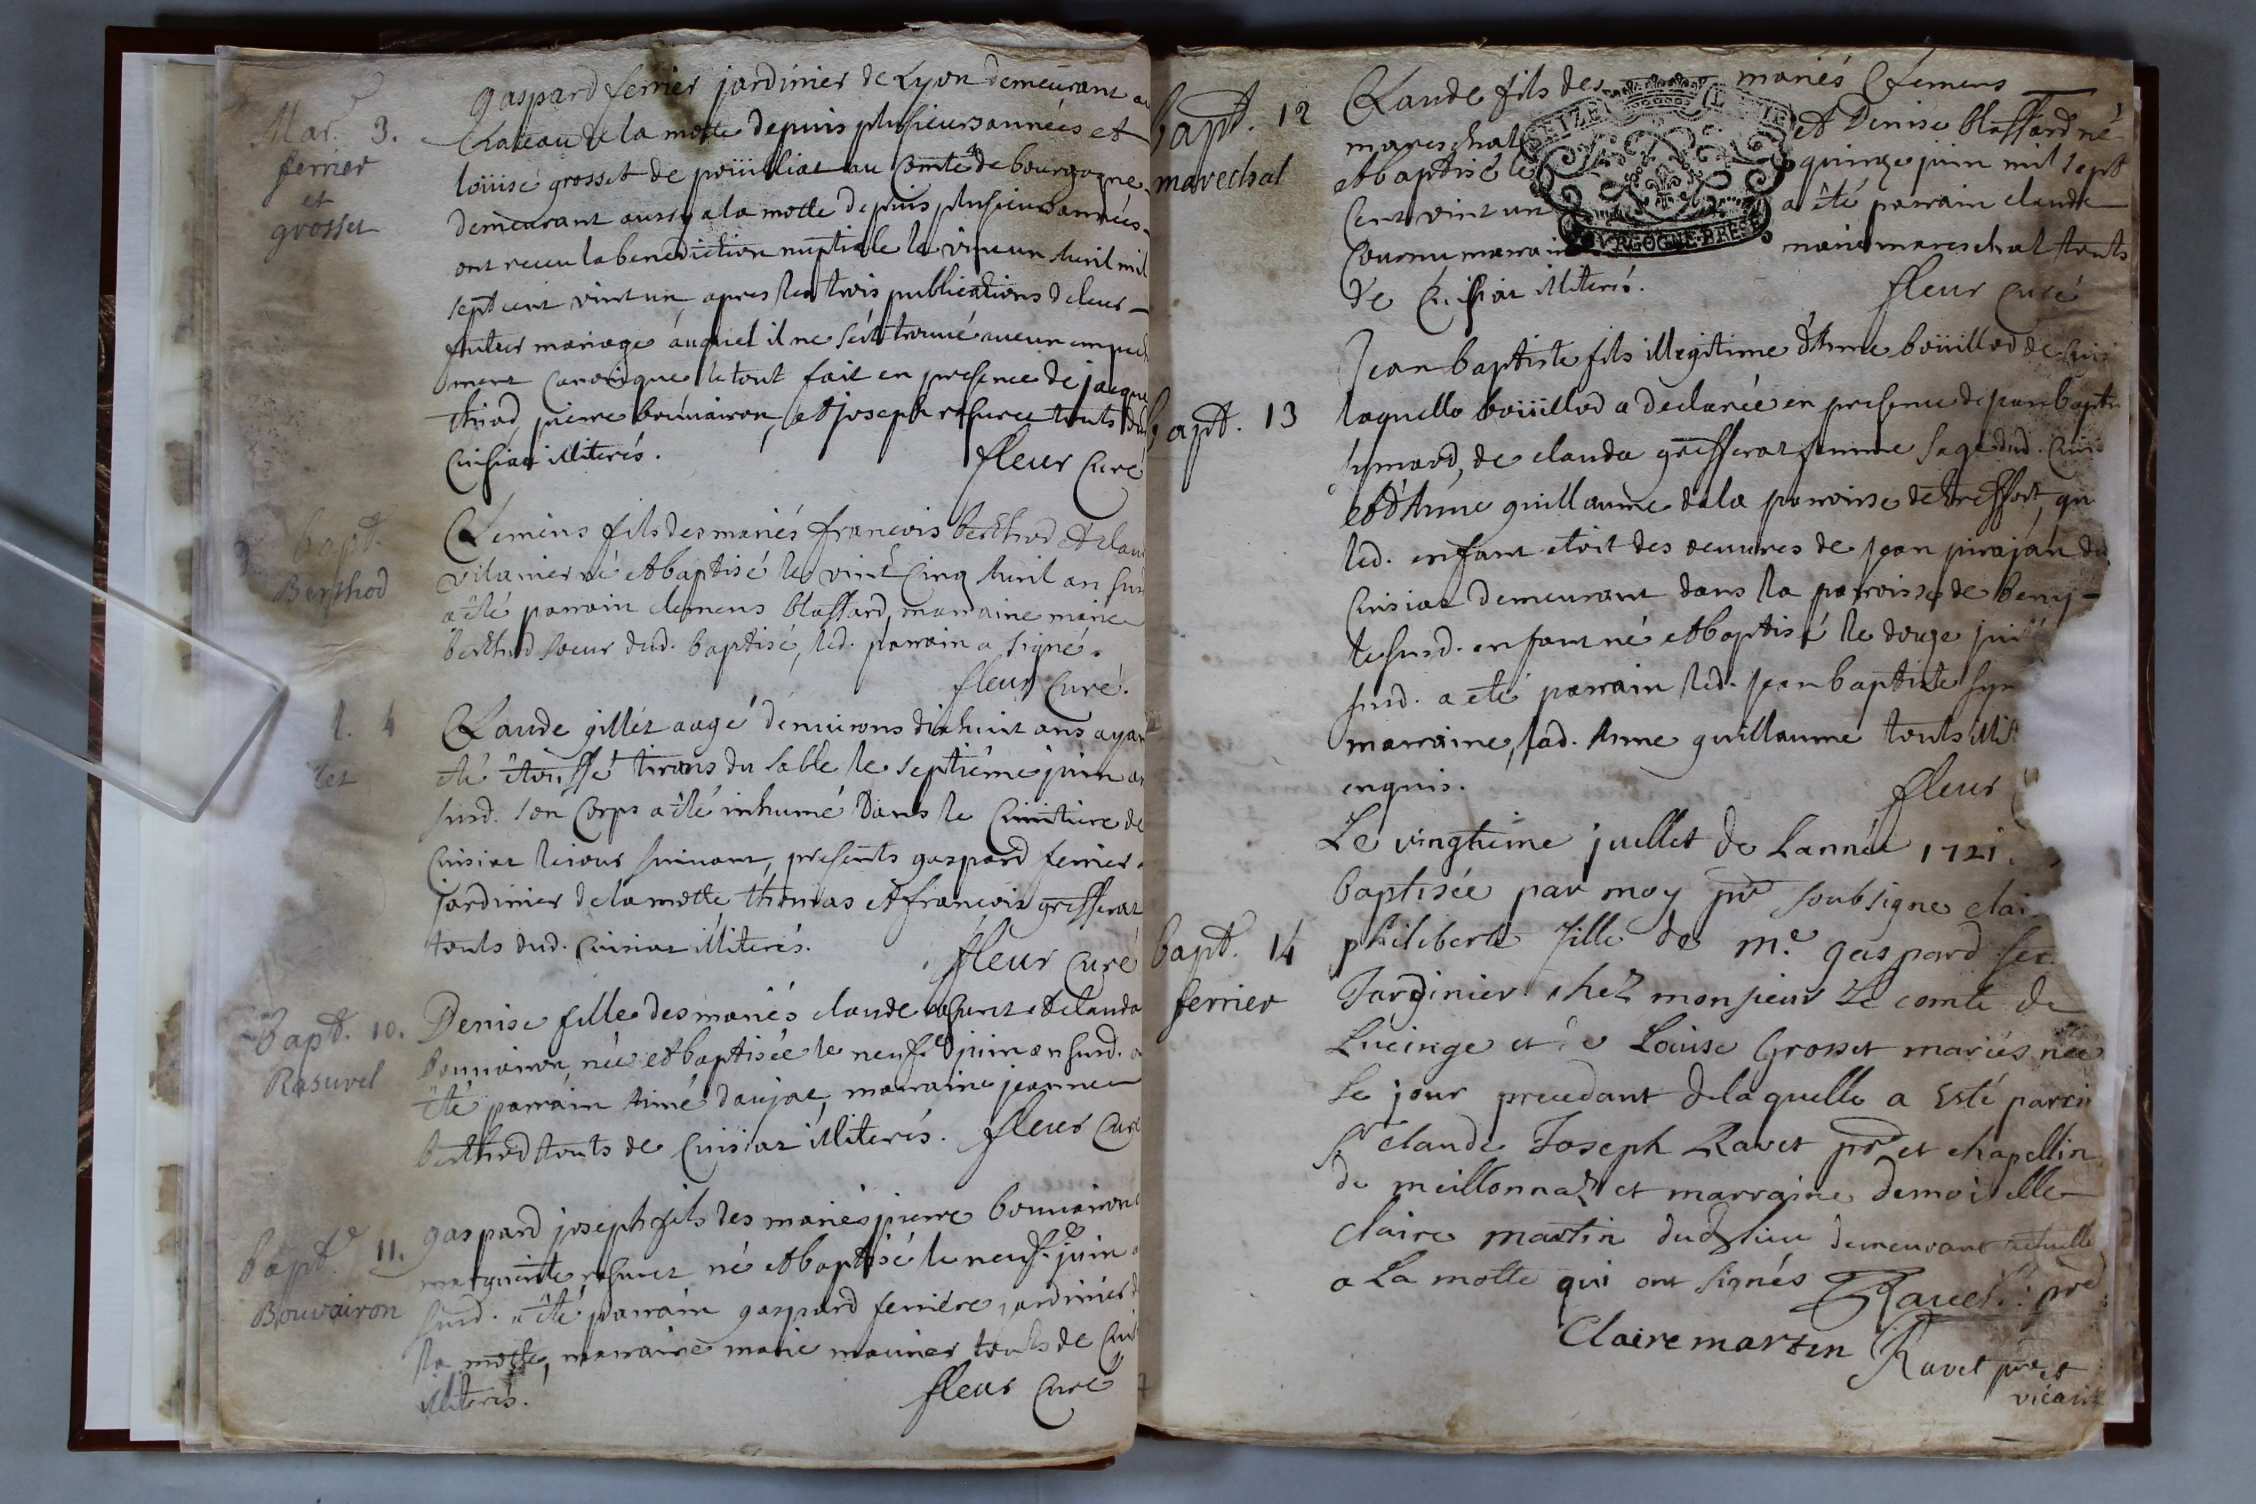 Mar. 3.
ferrier
et
grosset
gaspard ferrier jardinier de Lyon demeurant au
chateau de la motte depuis plusieurs années et
loüise grosset de au Comté de bourgogne
demeurant aussy a la motte depuis plusieurs années
ont receu la benediction nuptiale le vint un Avril mil
sept cent vint un apres les trois publications de leur
futur mariage auquel il ne s'est trouvé aucun empech
ment canonique le tout fait en presence de jacque
pierre bouvairon, et joseph rasurel touts dud
Cuisiat illiterés.
fleur Curé
bapt.
Berthod
Clemens fils des mariés francois berthod et clau
né et baptisé le vint Cinq Avril an susd
a été parrain clemens blassard, marraine marie
berthod soeur dud. baptisé, led. parrain a signé.
fleur Curé.
4
let
Claude gillet aagé denvirons dixhuit ans ayant
été étouffé tirans du sable le septiéme juin an
susd. son Corps a été inhumé dans le Cimitiere de
Cuisiat le jour suivant, presents gaspard ferrier
jardinier de la motte thomas et francois grifferat
touts dud. Cuisiat illiterés.
fleur Curé
bapt. 10.
Rasurel
Denise fille des mariés claude rasurel et clauda
bouvairon, née et baptisée le neuf.e juin an susd. a
été parrain Aimé daujat, marraine jeanne
berthod touts de Cuisiat illiterés. fleur Curé
bapt. 11.
Bouvairon
gaspard joseph fils des mariés pierre bouvairon
marguerite rasurel né et baptisé le neuf.e juin
susd. a été parrain gaspard ferriére jardinier d
la motte, marraine marie mounier touts de Cuis
illiterés.
fleur Curé
bapt. 12
marechal
Claude fils des mariés Clemens
mareschal et Denise blassard né
et baptisé le quinze juin mil sept
Cent vint un a été parrain claude
Cournu marraine mareschal touts
de Cuisiat illiterés.
fleur Curé
SEIZE
BOVRGOGNE BRESSE
bapt. 13
Jean baptiste fils illegitime d'Anne boüillod de Cuisi
laquelle boüillod a declarée en presence de jean baptis
symard, de clauda grifferat femme sage dud. Cuis
et d'Anne guillaume de la parroisse de treffort, qu
led. enfant etoit des oeuvres de jean pirajan de
Cuisiat demeurant dans la parroisse de beny
le susd. enfant né et baptisé le douze jui
susd. a été parrain led. jean baptiste sym
marraine, lad. Anne guillaume touts illit
enquis.
fleur
bapt. 14
ferrier
Le vingtieme juillet de Lannée 1721.
baptisée par moy pre soubsigne clai
philiberte fille de me. gaspard fer
Jardinier chez monsieur Le comte de
Lucinge et de Louise Grosset mariés née
Le jour precedant de laquelle a Esté parrin
sr claude Joseph Ravet pre et chapellin
de meillonnaz et marraine demoiselle
Claire martin dud lieu demeurant actuelle
a La motte qui ont signés Ravet pre
Claire martin Ravet pre et
vicaire